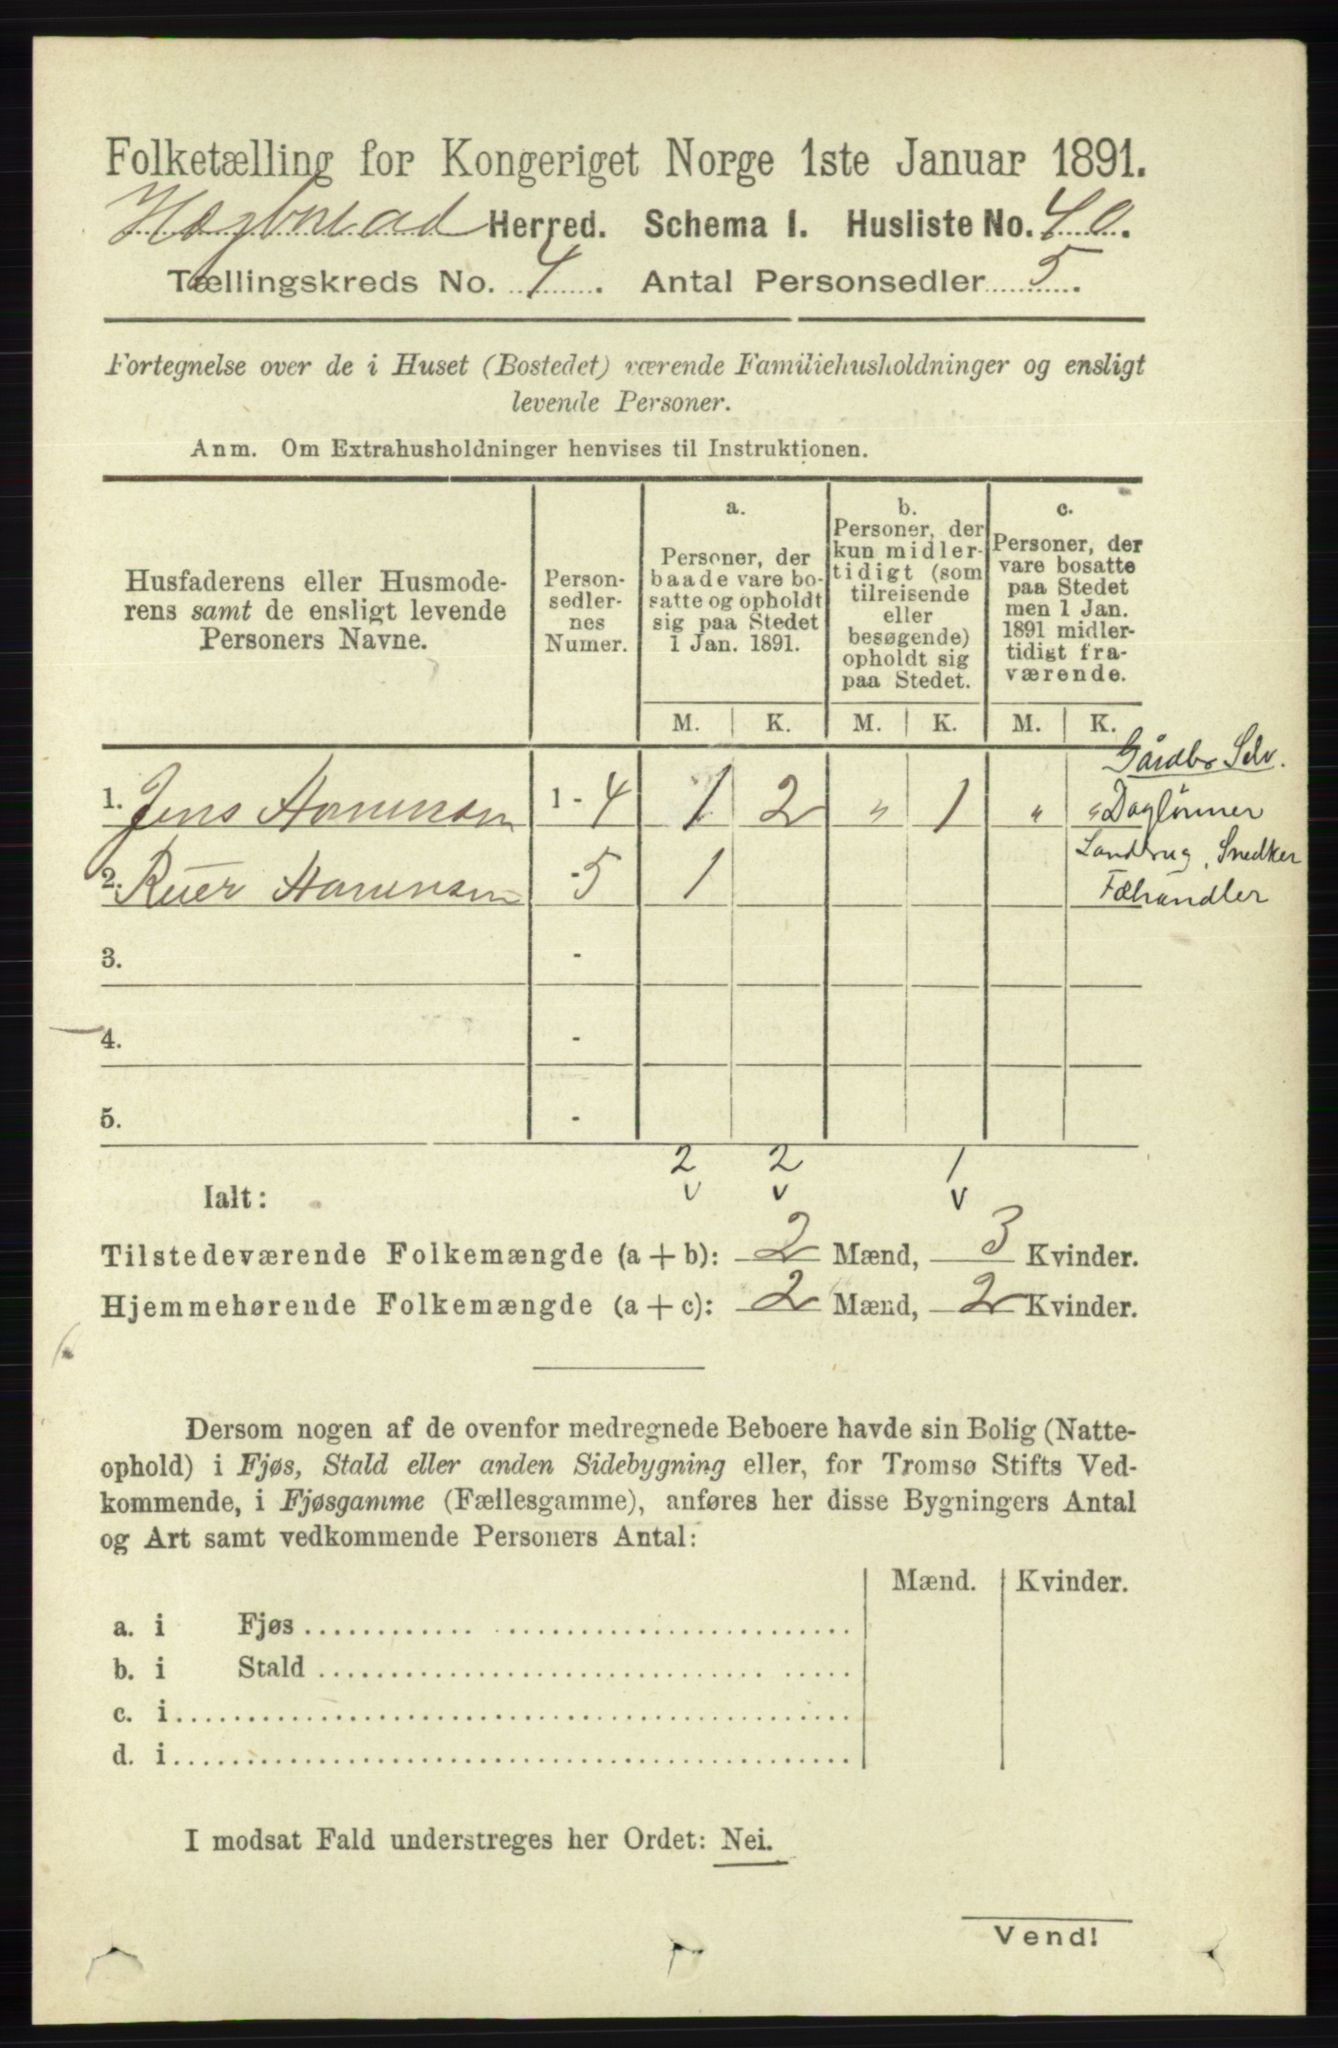 Folketælling for Kongeriget Norge 1ste Januar 1891.
Hægbostad Herred. Schema I. Husliste No. 40.
Tællingskreds No. 4. Antal Personsedler 5.
Fortegnelse over de i Huset (Bostedet) værende Familiehusholdninger og ensligt
levende Personer.
Anm. Om Extrahusholdninger henvises til Instruktionen.
Husfaderens eller Husmode-
rens samt de ensligt levende
Personers Navne.
Person-
sedler-
nes
Numer.
a.
Personer, der
baade vare bo-
satte og opholdt
sig paa Stedet
1 Jan. 1891.
b.
Personer, der
kun midler-
tidigt (som
tilreisende
eller
besøgende)
opholdt sig
paa Stedet.
c.
Personer, der
vare bosatte
paa Stedet
men 1 Jan.
1891 midler-
tidigt fra-
værende.
M. K. M. K. M. K.
Gårdbr Selv.
1. Jens 1 - 4 1 2 " 1 " " Dagлønner
Landbrug, Snedker
2. - 5 1 Fæhandler
3. -
4. -
5. -
2 2 1
v v v
Ialt:
Tilstedeværende Folkemængde (a + b): 2 Mænd, 3 Kvinder.
Hjemmehørende Folkemængde (a + c): 2 Mænd, 2 Kvinder.
Dersom nogen af de ovenfor medregnede Beboere havde sin Bolig (Natte-
ophold) i Fjøs, Stald eller anden Sidebygning eller, for Tromsø Stifts Ved-
kommende, i Fjøsgamme (Fællesgamme), anføres her disse Bygningers Antal
og Art samt vedkommende Personers Antal:
Mænd. Kvinder.
a. i Fjøs
b. i Stald
c. i
d. i
I modsat Fald understreges her Ordet: Nei.
Vend!